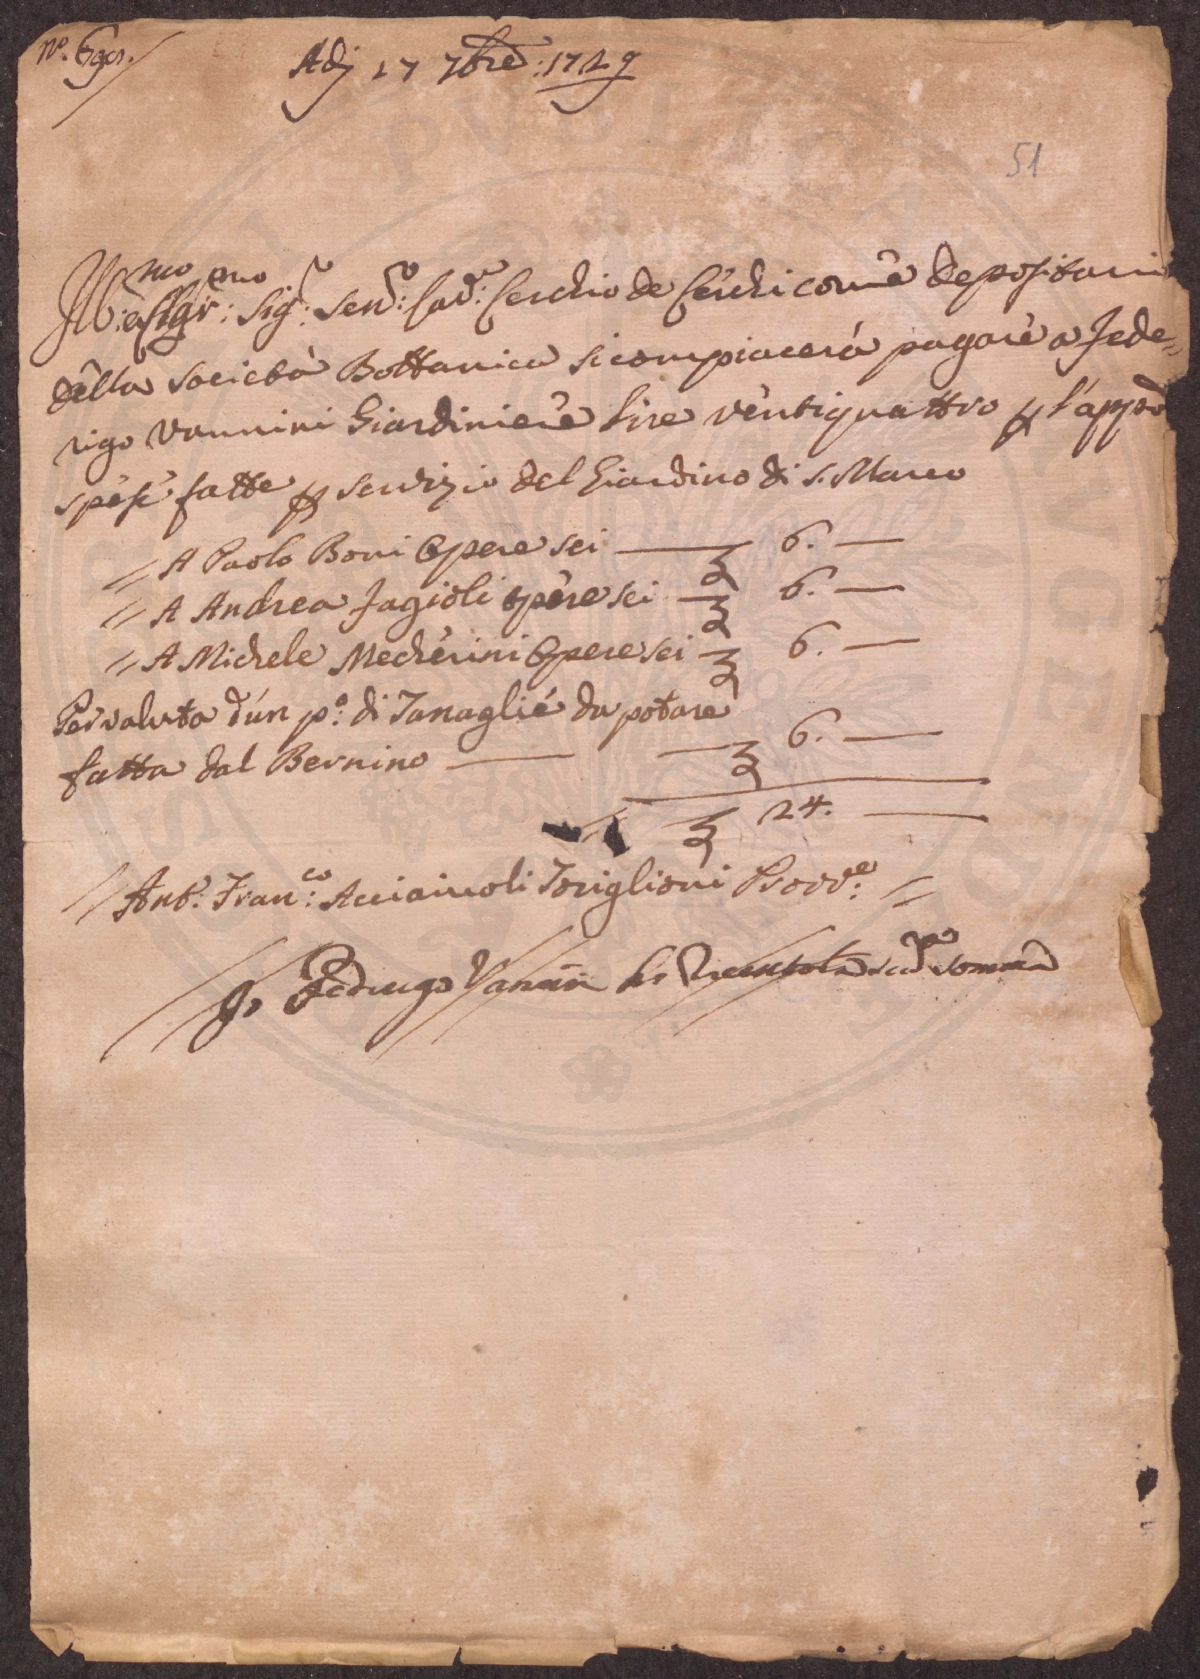 Adj 17 7bre: 1729
51
Ill:mo e Clar:mo Sig:r Sen:r Cav:e Cerchio de Cerchi come depositario
della società Bottanica si compiacerà pagare a Fede=
rigo Vannini Giardiniere lire ventiquattro p l'app:o
spese fatte p servizio del Giardino di S. Marco
// A Paolo Boni Opere sei — £ 6. —
// A Andrea Fagioli opere sei — £ 6. —
// A Michele Mecherini Opere sei — £ 6. —
Per valuta d'un p:o di Tanaglie da potare
fatta dal Bernino — £ 6. —
£ 24. —
// Ant:o Fran:co Acciaiuoli Toriglioni Provv:e //
Io Federigo Vannini ho sud:a somma